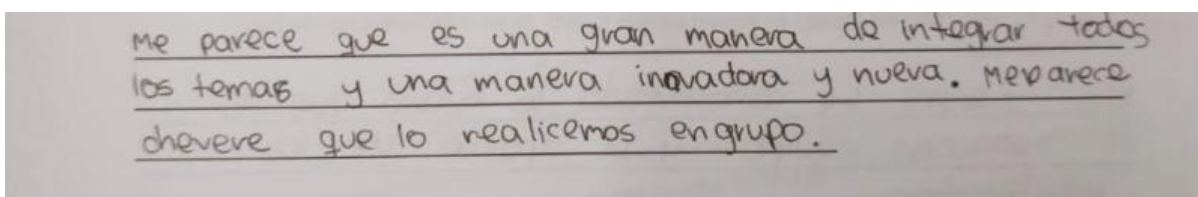 Me parece que es una gran manera de integrar todos
los temas y una manera inovadora y nueva. Me parece
chevere que lo realicemos en grupo.